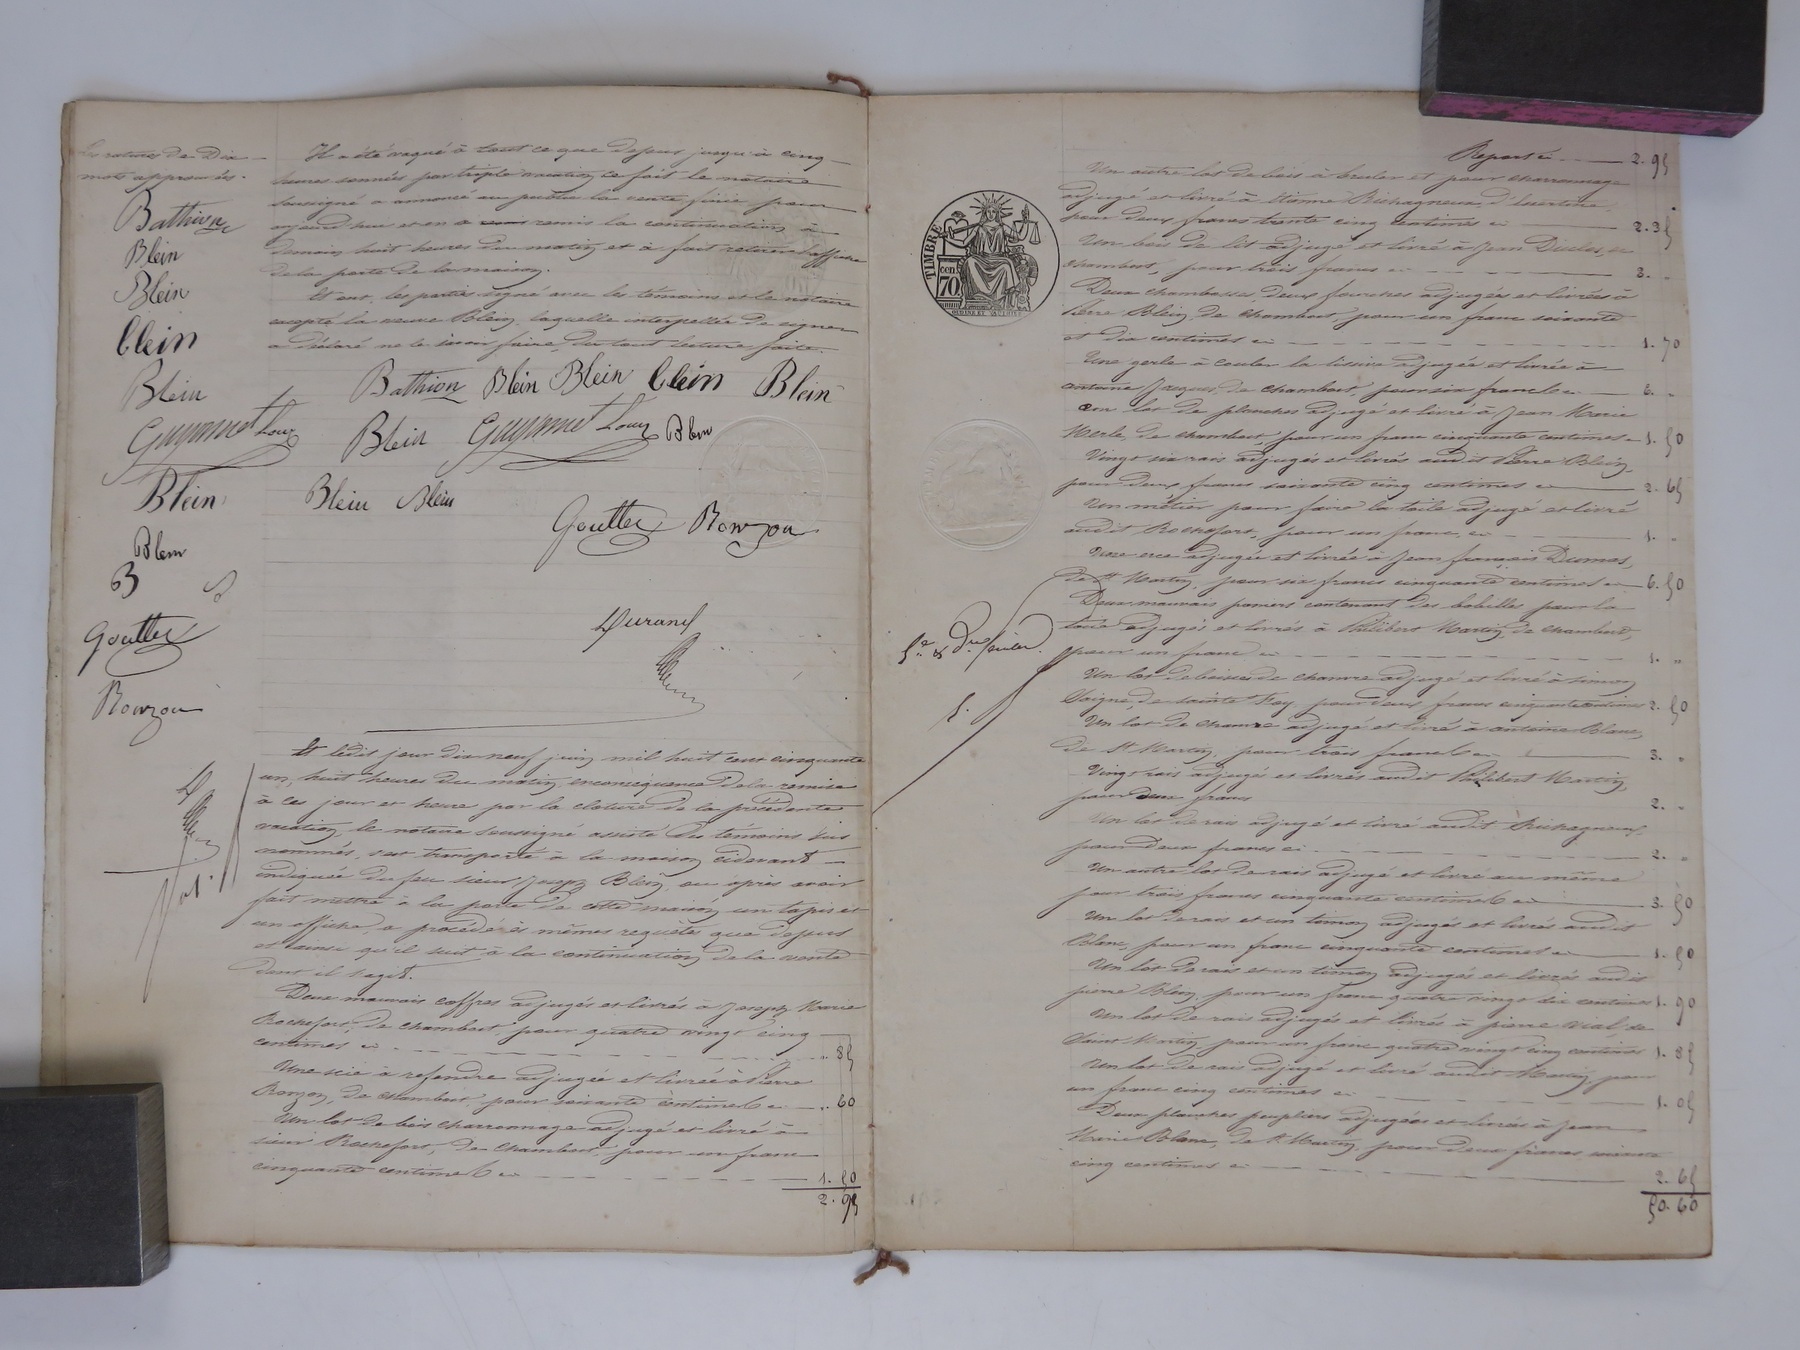 Les ratures de Dix
mots approuvés.
Bathion
Blein
Blein
blein
Blein
Guyonnet Louis
Blein
Blein
B
Goutte
Ronzon
Il a été vaqué à tout ce que dessus jusqu'à cinq
heures sonnées par triple vacation, ce fait le notaire
soussigné a annoncé au public la vente finie pour
aujourd'hui et en a remis la continuation à
demain huit heures du matin, et a fait retirer l'affiche
de la porte de la maison.
Et ont, les parties signé avec les témoins et le notaire
excepté la veuve Blein, laquelle interpellée de signer
a déclaré ne le savoir faire, du tout lecture faite.
Bathion Blein Blein blein Blein
Blein Guyonnet Louis Blein
Blein Blein
Goutte Ronzon
Durand
Et ledit jour dix neuf juin mil huit cent cinquante
un, huit heures du matin, en conséquence de la remise
à ces jour et heure par la cloture de la précédente
vacation, le notaire soussigné assisté des témoins sus
nommés, s'est transporté à la maison cidevant
indiquée du feu sieur Joseph Blein, ou après avoir
fait mettre à la porte de cette maison un tapis et
un affiche, a procédé ès mêmes requêtes que dessus
et ainsi qu'il suit à la continuation de la vente
dont il s'agit.
Deux mauvais coffres adjugés et livrés à Joseph Marie
Rochefort, de Chambost, pour quatre vingt cinq
centimes ci 85
Une scie à refendre adjugée et livrée à Pierre
Ronzon, de Chambost, pour soixante centimes ci 60
Un lot de bois charronnage adjugé et livré à
sieur Rochefort, de Chambost, pour un franc
cinquante centimes ci 1. 50
2. 95
Report ci 2. 95
Un autre lot de bois à bruler et pour charronnage
adjugé et livré à Etienne
pour deux francs trente cinq centimes ci 2. 35
Un bois de lit adjugé et livré à Jean Duclos, de
Chambost, pour trois francs ci 3. "
Deux deux fourches adjugées et livrées à
Pierre Blein, de Chambost, pour un franc soixante
et dix centimes ci 1. 70
Une gerle à couler la lissive adjugée et livrée à
antoine Jacquet, de Chambost, pour six francs ci 6. "
un lot de planches adjugé et livré à Jean Marie
Merle, de Chambost, pour un franc cinquante centimes ci 1. 50
Vingt six rais adjugés et livrés audit Pierre Blein,
pour deux francs soixante cinq centimes ci 2. 65
Un métier pour faire la toile adjugé et livré
audit Rochefort, pour un franc, ci 1. "
Une adjugée et livrée à Jean françois Dumas,
de St Martin, pour six francs cinquante centimes ci 6. 50
Deux mauvais paniers contenant des bobilles pour la
toile adjugés et livrés à Philibert Martin de Chambost,
pour un franc ci 1. "
Un lot de chanvre adjugé et livré à Simon
de Sainte Foy, pour deux francs cinquante centimes 2. 50
Un lot de chanvre adjugé et livré à antoine Blanc,
de St Martin, pour trois francs ci 3. "
Vingt rais adjugés et livrés audit Philibert Martin,
pour deux francs 2. "
Un lot de rais adjugé et livré audit
pour deux francs ci 2. "
Un autre lot de rais adjugé et livré au même
pour trois francs cinquante centimes ci 3. 50
Un lot de rais et un timon adjugés et livrés audit
Blanc, pour un franc cinquante centimes ci 1. 50
Un lot de rais et un timon adjugés et livrés audit
pierre Blein, pour un franc quatre vingt dix centimes 1. 90
Un lot de rais adjugés et livrés à pierre Vial, de
Saint Martin, pour un franc quatre vingt cinq centimes 1. 85
Un lot de rais adjugé et livré audit Martin, pour
un franc cinq centimes ci 1. 05
Deux planches peupliers adjugées et livrées à Jean
Marie Blanc, de St Martin, pour deux francs soixante
cinq centimes ci 2. 65
50. 60
TIMBRE
cen
70